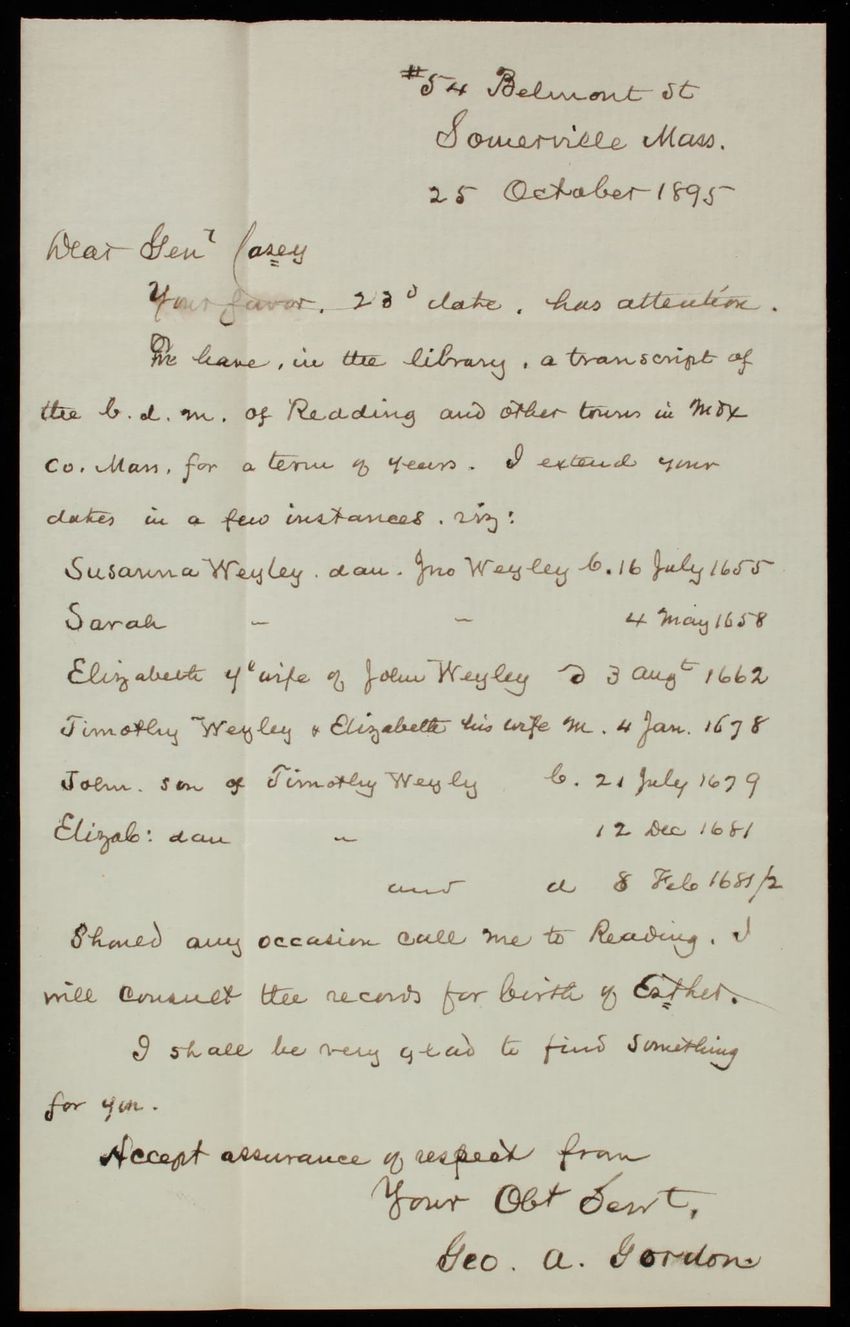 #54 Belmont St
Somerville Mass.
25 October 1895
Dear Genl Casey
Your favor, 23d date, has attention.
We have, in the library, a transcript of
the b. d. m. of Reading and other towns in Mdx
Co. Mass, for a term of years. I extend your
dates in a few instances. viz:
Susanna Weyley. dau. Jno Weyley b. 16 July 1655
Sarah " " 4 May 1658
Elizabeth ye wife of John Weyley d 3 Augt 1662
Timothy Weyley & Elizabeth his wife m. 4 Jan. 1678
John. son of Timothy Weyly b. 21 July 1679
Elizab: dau " 12 Dec 1681
and d 8 Feb 1681/2
Should any occasion call me to Reading, I
will consult the records for birth of Esther.
I shall be very glad to find something
for you.
Accept assurance of respect from
Your Obt Servt,
Geo. A. Gordon